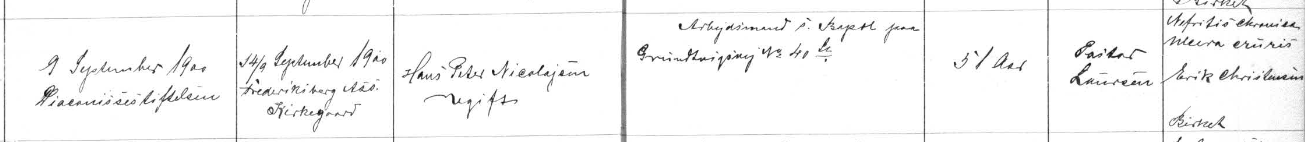 9 September 1900
Diaconissestiftelsen
14/9 September 1900
Frederiksberg Ass.
Kirkegaard
Hans Peter Nicolajsen
ugift
Arbejdsmand i. Kapel paa
Grundtvigsvej No 40
51 Aar
Pastor
Laursen
Nefritis chronica
ulcera cruris
Erik Christensen
Birket